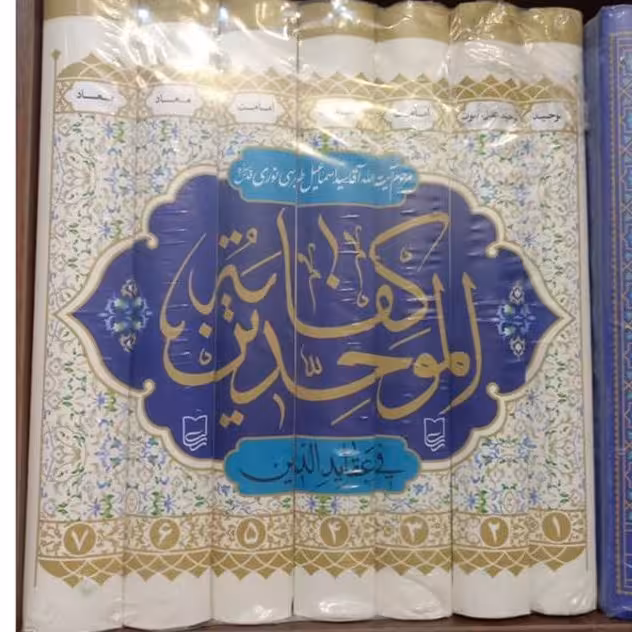 توحید
امامت
امامت
معاد
معاد
مرحوم آیت الله آقا سید اسماعیل طبرسی نوری
کفایة
الموحدین
في عقاید الدین
۱
۲
۳
۴
۵
۶
۷